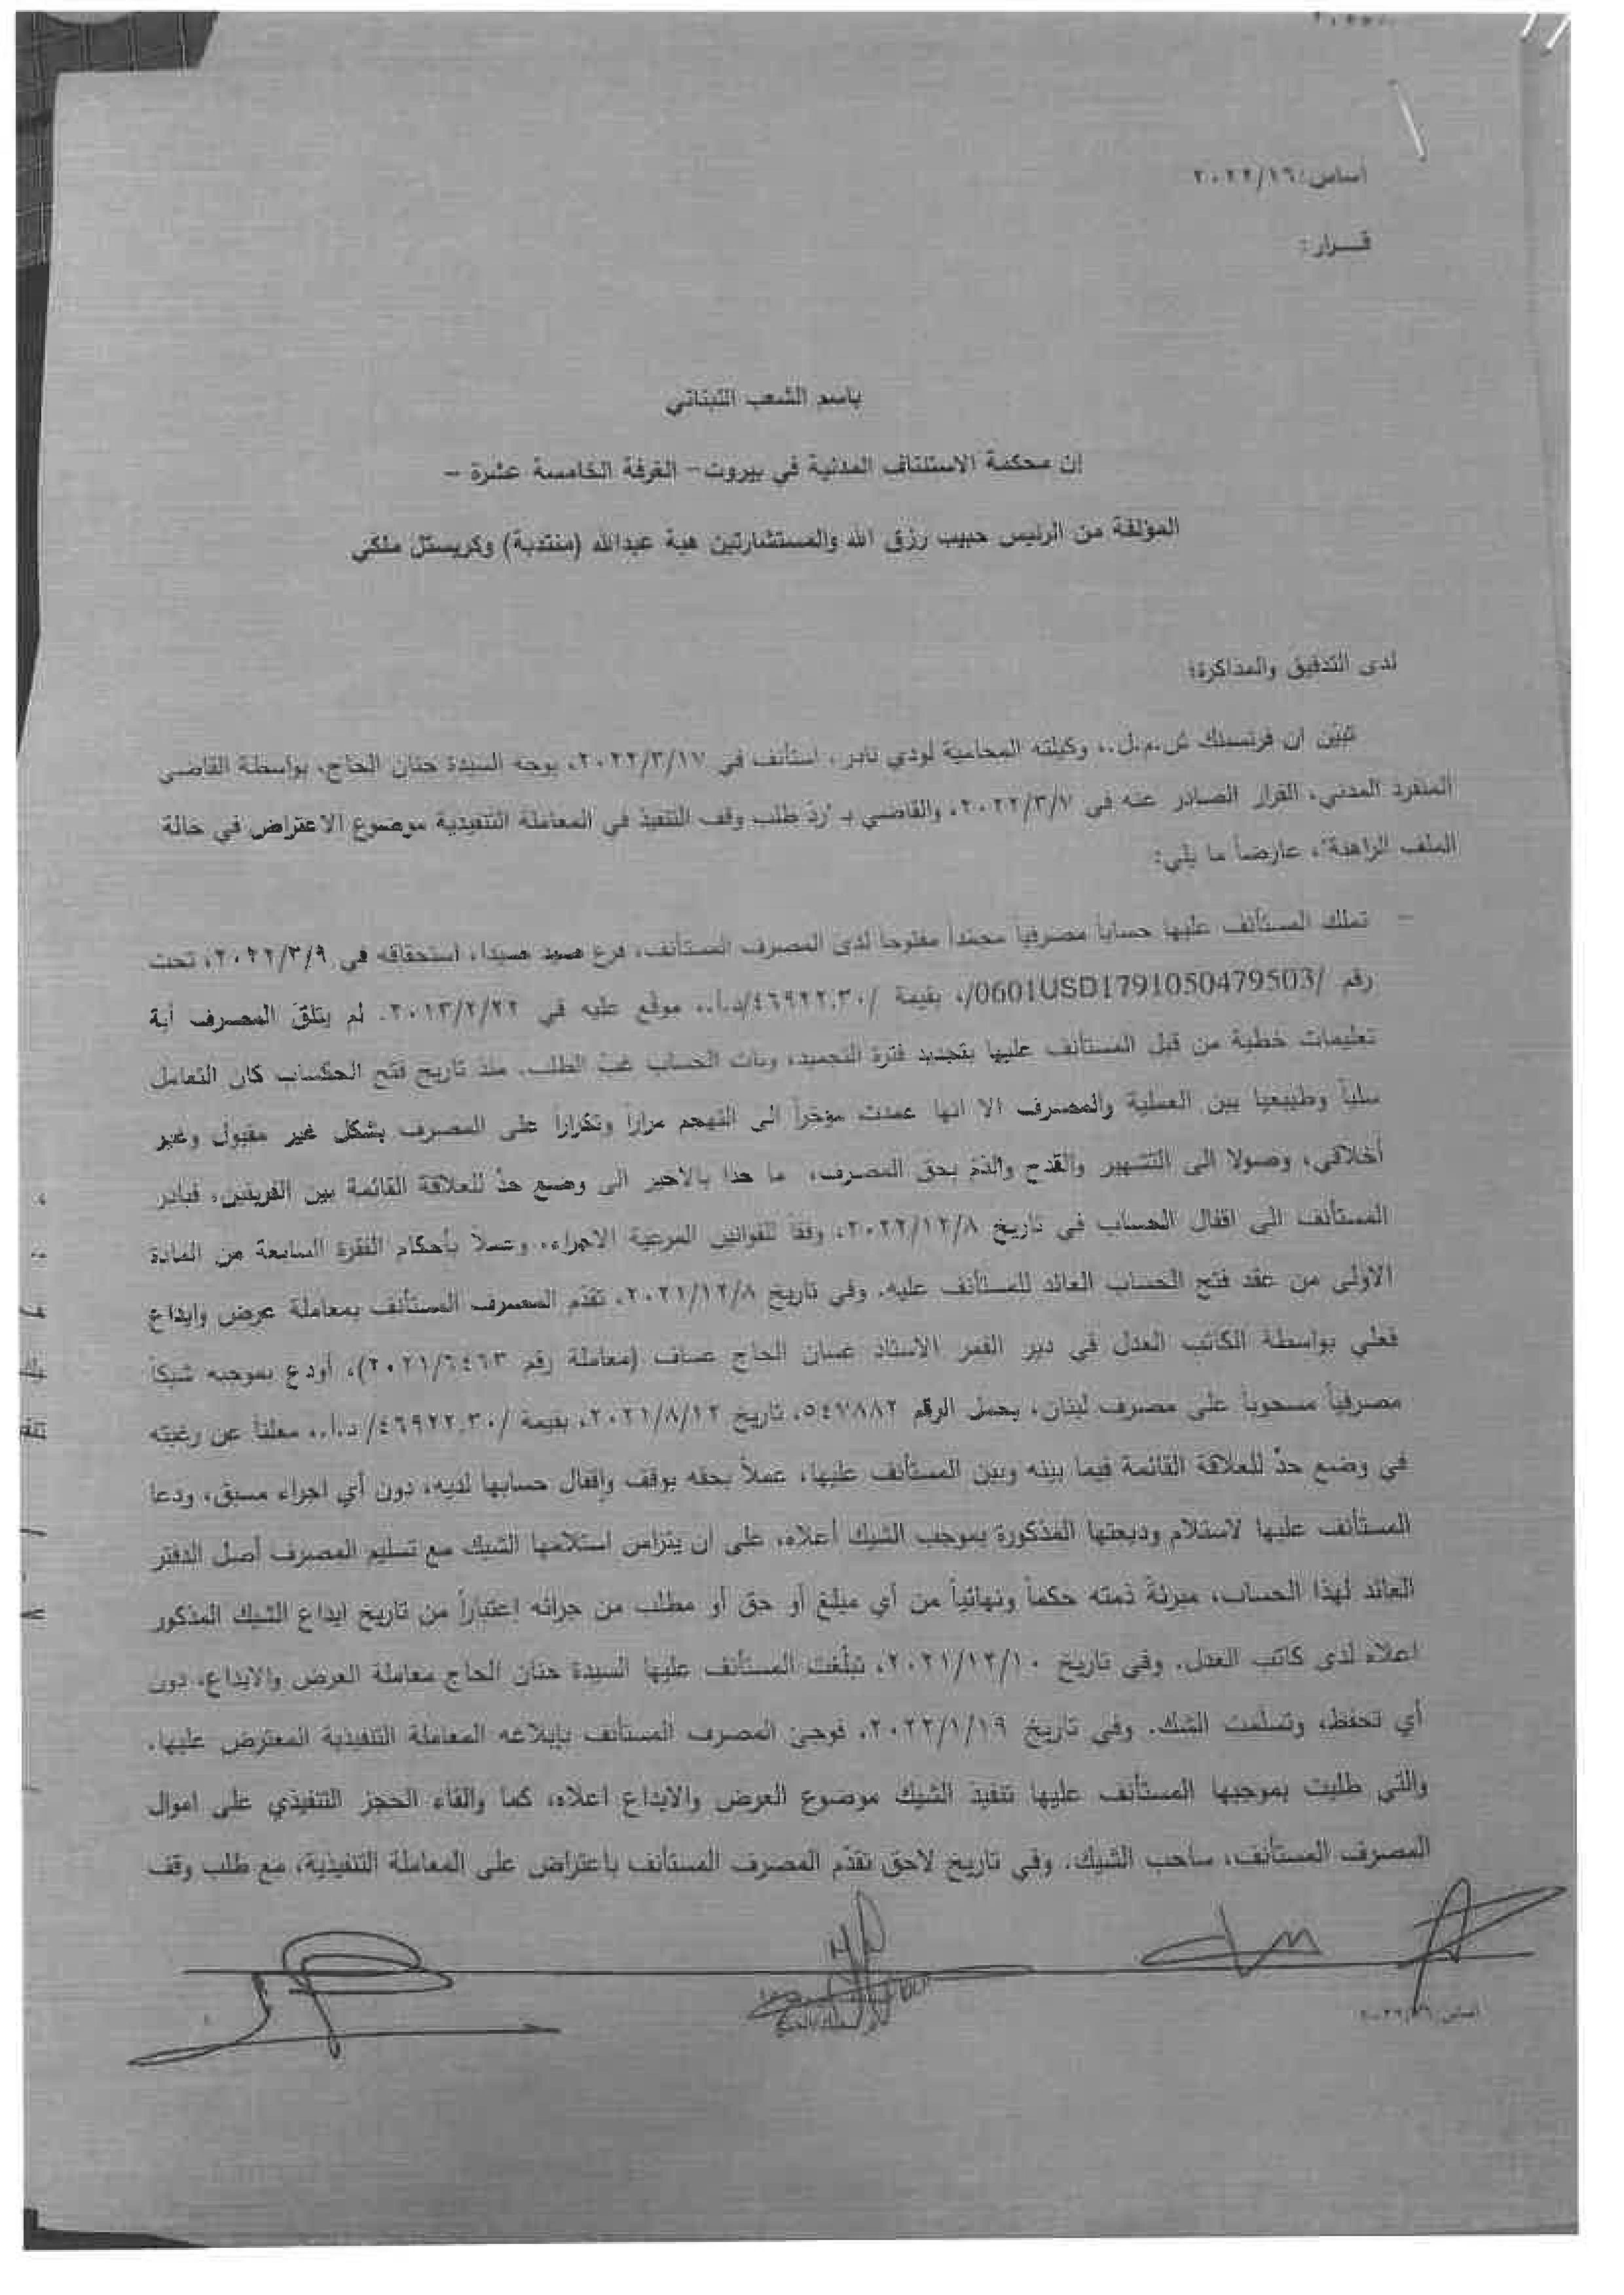 أساس: ٢٠٢٢/١٦
قـــرار:
باسم الشعب اللبناني
إن محكمة الاستئناف المدنية في بيروت – الغرفة الخامسة عشرة –
المؤلفة من الرئيس حبيب رزق الله والمستشارتين هبة عبدالله (منتدبة) وكريستل ملكي
لدى التدقيق والمذاكرة؛
تبيّن ان فرنسبنك ش.م.ل.، وكيلته المحامية لودي نادر، استأنف في ٢٠٢٢/٣/١٧، بوجه السيدة حنان الحاج، بواسطة القاضي
المنفرد المدني، القرار الصادر عنه في ٢٠٢٢/٣/٧، والقاضي بـ رّد طلب وقف التنفيذ في المعاملة التنفيذية موضوع الاعتراض في حالة
الملف الراهنة"، عارضاً ما يلي:
– تملك المستأنف عليها حساباً مصرفياً مجمّداً مفتوحاً لدى المصرف المستأنف، فرع صيدا، استحقاقه في ٢٠٢٢/٣/٩، تحت
رقم /0601USD1791050479503/، بقيمة /٤٦٩٢٢.٣٠/د.أ.، موقع عليه في ٢٠١٣/٢/٢٢. لم يتلقَ المصرف أية
تعليمات خطية من قبل المستأنف عليها بتجديد فترة التجميد، وبات الحساب غبّ الطلب. منذ تاريخ فتح الحساب كان التعامل
سلياً وطبيعيا بين العميلة والمصرف الا انها عمدت مؤخراً الى التهجم مراراً وتكراراً على المصرف بشكل غير مقبول وغير
أخلاقي، وصولا الى التشهير والقدح والذم بحق المصرف، ما حدا بالأخير الى وضع حدّ للعلاقة القائمة بين الفريقين، فبادر
المستأنف الى اقفال الحساب في تاريخ ٢٠٢٢/١٢/٨، وفقاً للقوانين المرعية الاجراء، وعملاً بأحكام الفقرة السابعة من المادة
الاولى من عقد فتح الحساب العائد للمستأنف عليه. وفي تاريخ ٢٠٢١/١٢/٨، تقدّم المصرف المستأنف بمعاملة عرض وايداع
فعلي بواسطة الكاتب العدل في دير القمر الاستاذ غسان الحاج عساف (معاملة رقم ٢٠٢١/٦٤٦٣)، أودع بموجبه شيكاً
مصرفياً مسحوباً على مصرف لبنان، يحمل الرقم ٥٤٧٨٨٢، تاريخ ٢٠٢١/٨/١٢، بقيمة /٤٦٩٢٢.٣٠/ د.أ.، معلناً عن رغبته
في وضع حدّ للعلاقة القائمة فيما بينه وبين المستأنف عليها، عملاً بحقه بوقف وإقفال حسابها لديه، دون أي اجراء مسبق، ودعا
المستأنف عليها لاستلام وديعتها المذكورة بموجب الشيك أعلاه، على أن يتزامن استلامها الشيك مع تسليم المصرف أصل الدفتر
العائد لهذا الحساب، مبرئةً ذمته حكماً ونهائياً من أي مبلغ أو حق أو مطلب من جرائه إعتباراً من تاريخ ايداع الشيك المذكور
اعلاه لدى كاتب العدل. وفي تاريخ ٢٠٢١/١٢/١٠، تبلّغت المستأنف عليها السيدة حنان الحاج معاملة العرض والايداع، دون
أي تحفظ، وتسلمت الشك. وفي تاريخ ٢٠٢٢/١/١٩، فوجئ المصرف المستأنف بإبلاغه المعاملة التنفيذية المعترض عليها،
والتي طلبت بموجبها المستأنف عليها تنفيذ الشيك موضوع العرض والايداع اعلاه، كما والقاء الحجز التنفيذي على اموال
المصرف المستأنف، ساحب الشيك. وفي تاريخ لاحق تقدّم المصرف المستأنف باعتراض على المعاملة التنفيذية، مع طلب وقف